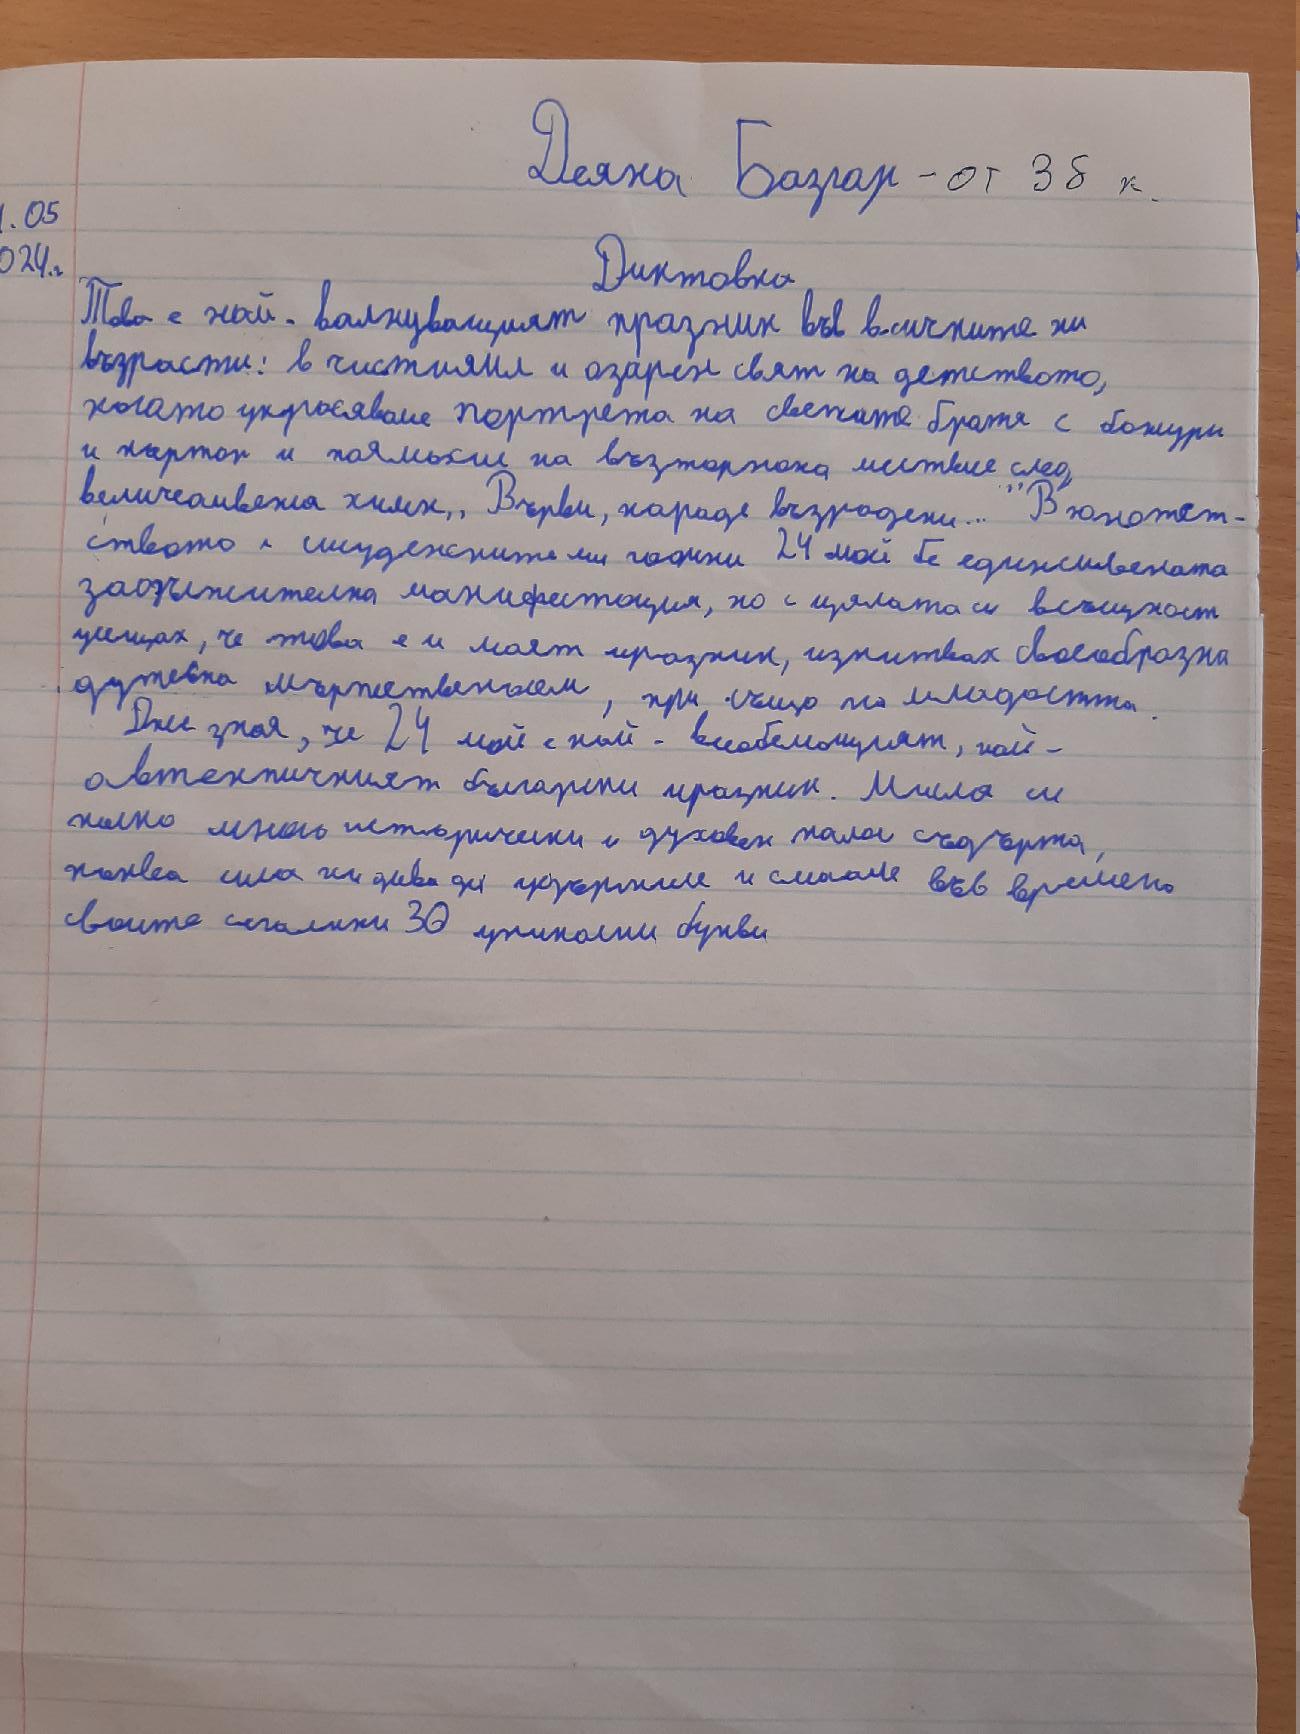 Деяна Базган - от 3 б к.
1.05
024.г
Диктовка
Това е най - валнуващият празник във всичките ни
възрасти: в чистиял и озарен свят на детството,
когато украсяваме портрета на светите братя с божури
и картон и на възторжена шествие след
химн „ Върви, народе възродени... " В юношет-
ството и студенските ми години 24 май бе единствената
задължителна манифестация, но с цялата си всъщност
усещах, че това е и моят празник, изпитвах своеобразна
душевна , при също на младостта.
Днес зная, че 24 май е най - всеобемощият, най -
автентичният български празник. Мисля си
колко много исторически и духовен налог съдържа,
каква сила ни дава да удържиме и във времено
своите сегалини 30 уникални букви